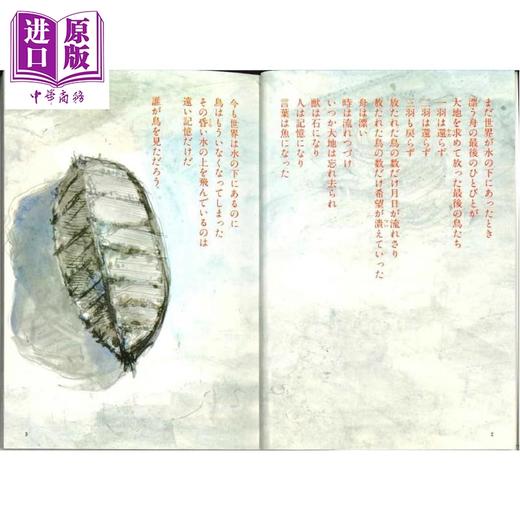 进口
原版
中华商务
まだ世界が水の下にあったとき
漂う舟の最後のひとびとが
大地を求めて放った最後の鳥たち
一羽は還らず
二羽は還らず
三羽も戻らず
放たれた鳥の数だけ月日が流れさり
放たれた鳥の数だけ希望が潰えていった
舟は漂い、
時は流れつづけ
いつか大地は忘れ去られ
獣は石になり
人は記憶になり
言葉は魚になった
今も世界は水の下にあるのに
鳥はもういなくなってしまった
その昏い水の上を飛んでいるのは
遠い記憶だけだ
誰が鳥を見ただろう。
2
3